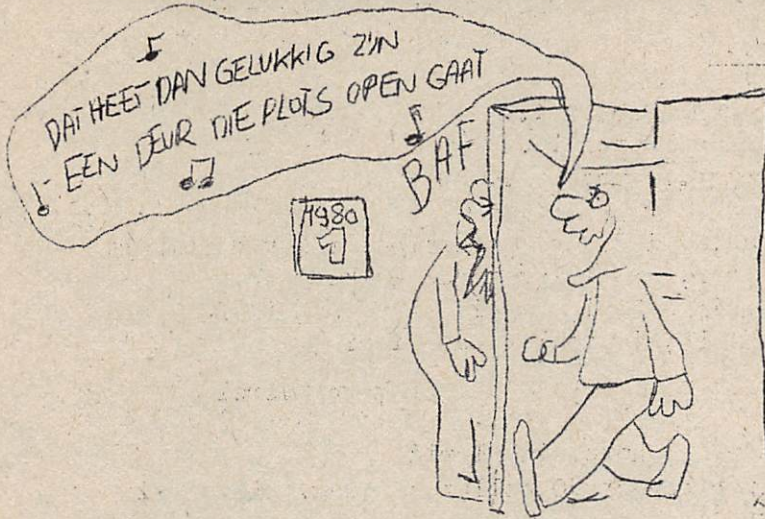 DAT HEET DAN GELUKKIG ZIJN
EEN DEUR DIE PLOTS OPEN GAAT
BAF
1980
1